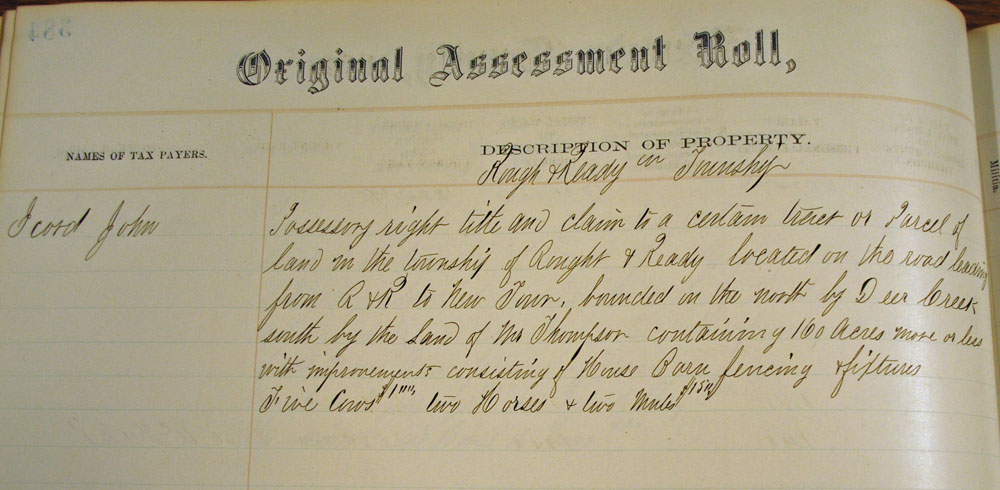 384
Original Assessment Roll,
NAMES OF TAX PAYERS.
DESCRIPTION OF PROPERTY.
Rough & Ready in Township
John
Possessory right title and claim to a certain tract or Parcel of
land in the township of Rought & Ready located on the road leading
from R & R to New Town, bounded on the north by Deer Creek
south by the Land of Mr Thompson containing 160 Acres more or less
with improvements consisting of House Barn fencing & fixtures
Five Cows two Horses & two Mules